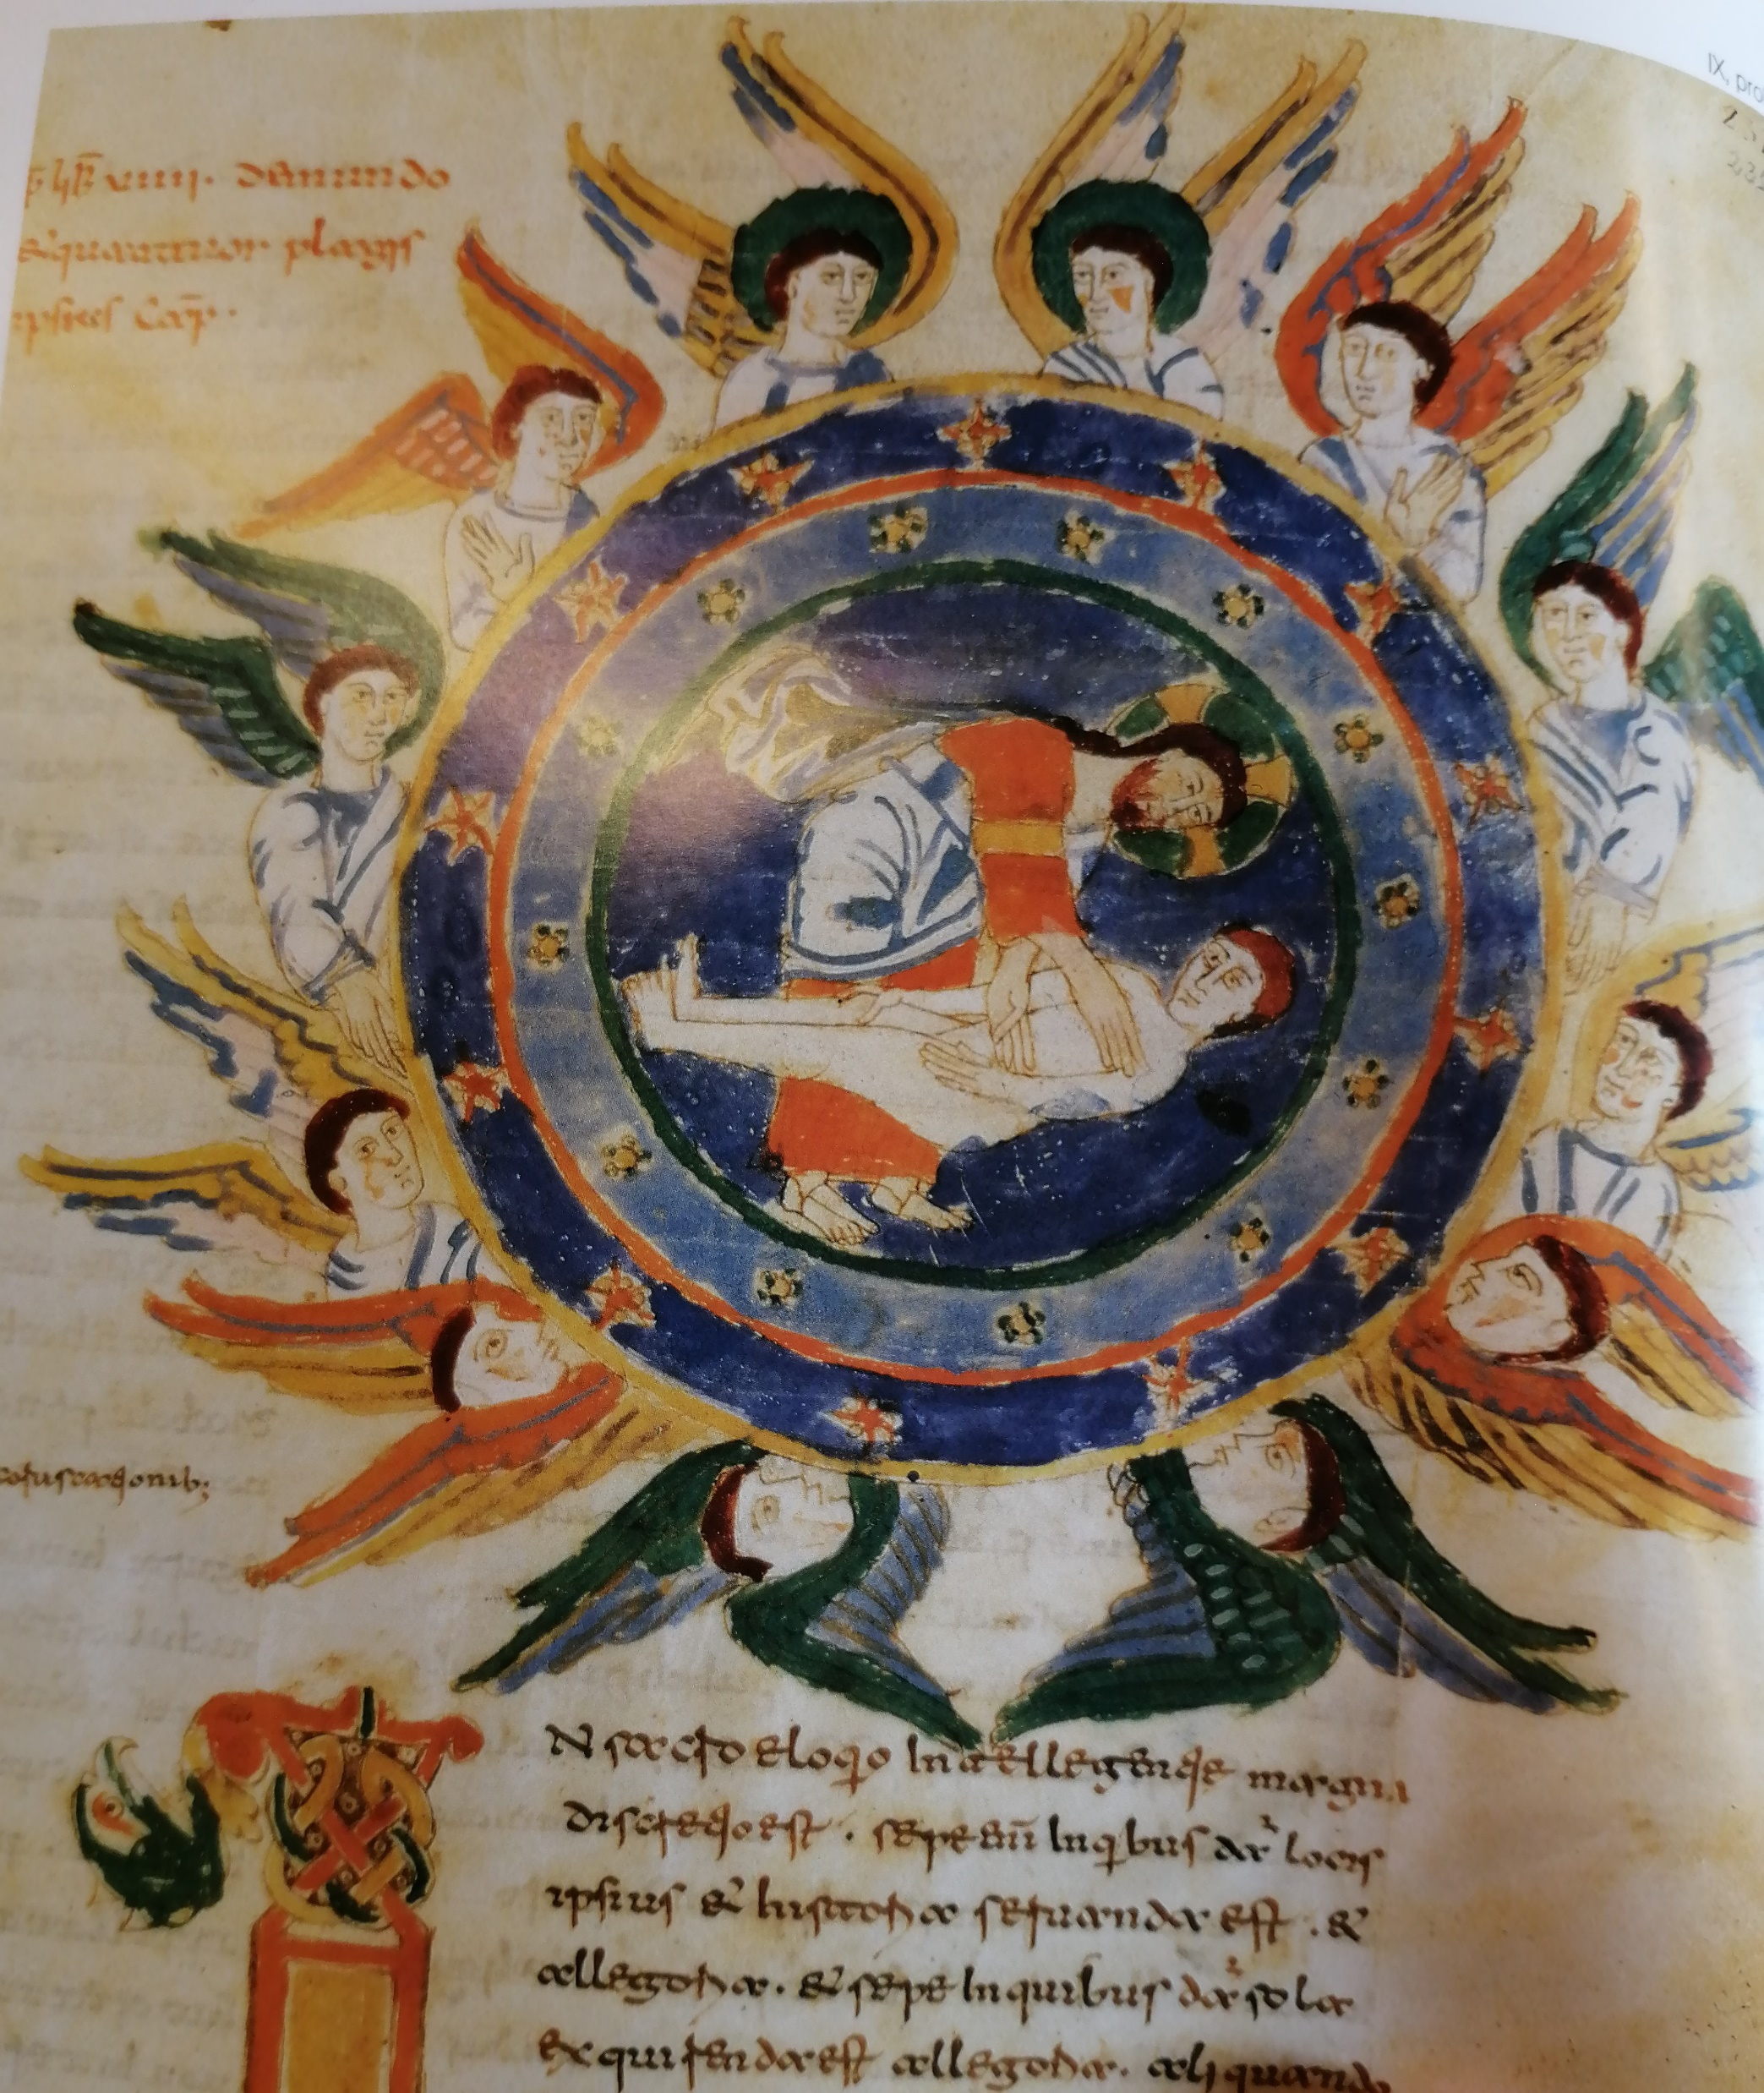 IX, pro
lib̄ viiii. de mundo
& quattuor plagis
ipsius Cap̄.
N sacro eloqio intellegentie magna
discretio est. sepe enī inqibus da locis
ipsius & historia seruanda est. &
allegoria. & sepe inquibus da sola
exquirenda est allegoria. aliquando